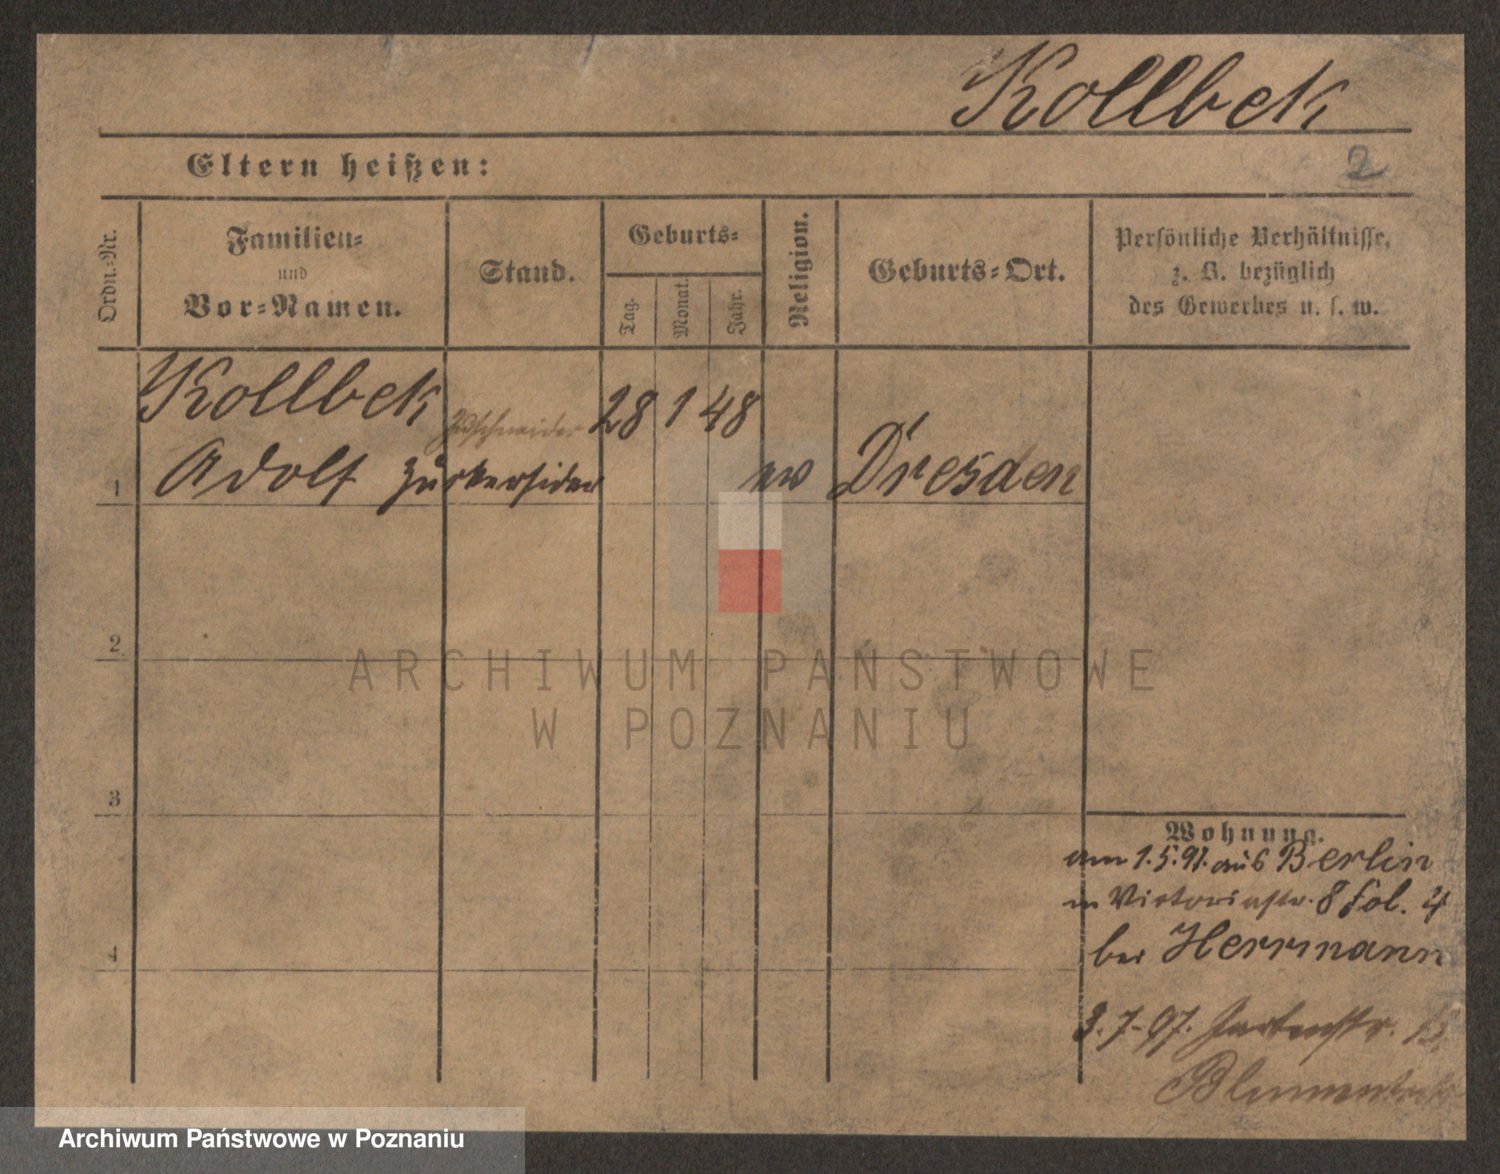 Kollbek
Eltern heißen:
2
Ordn.-Nr.
Familien-
und
Vor-Namen.
Stand.
Geburts-
Tag.
Monat.
Jahr.
Religion.
Geburts-Ort.
Persönliche Verhältnisse,
z. B. bezüglich
des Gewerbes u. s. w.
Kollbek
Zuschneider
28 1 48
1
Adolf
ev
Dresden
2
3
4
Wohnung.
am 1.5.97. aus Berlin
in Victoriastr. 8 Fol. 4
bei Herrmann
3.7.97. Gartenstr.
ARCHIWUM PAŃSTWOWE
W POZNANIU
Archiwum Państwowe w Poznaniu